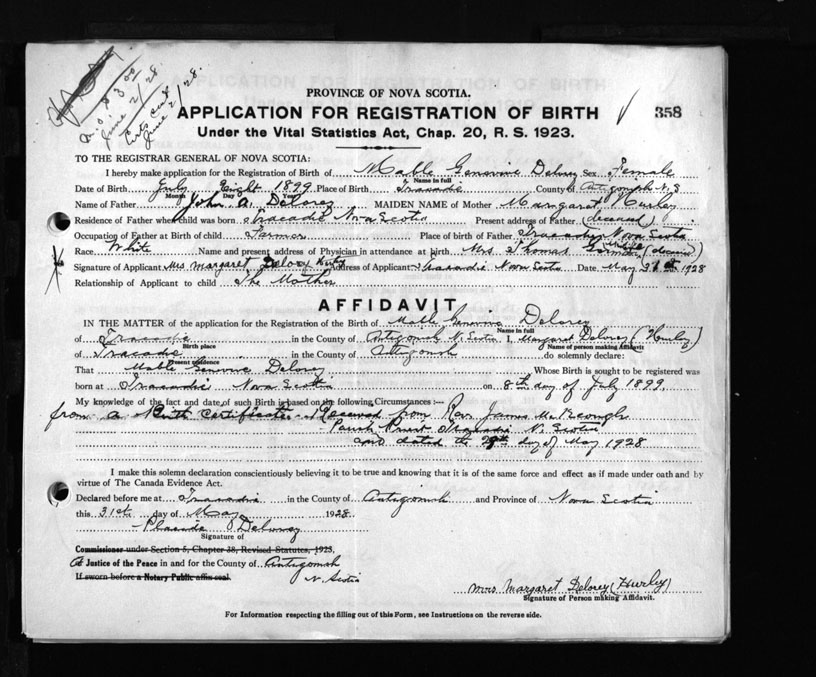 $3.00
June 2/28.
Certs sent
June 2/28.
PROVINCE OF NOVA SCOTIA.
APPLICATION FOR REGISTRATION OF BIRTH ✓ 358
Under the Vital Statistics Act, Chap. 20, R. S. 1923.
TO THE REGISTRAR GENERAL OF NOVA SCOTIA:
I hereby make application for the Registration of Birth of Mable Genevive Delorey Sex Female
Name in full
Date of Birth July Eight 1899 Place of Birth Tracadie County of Antigonish N.S
Month Day Year
Name of Father John A. Delorey MAIDEN NAME of Mother Margaret Hurley
Residence of Father when child was born Tracadie Nova Scotia Present address of Father (deceased)
Occupation of Father at Birth of child Farmer Place of birth of Father Tracadie Nova Scotia
Race White Name and present address of Physician in attendance at birth Mrs Thomas
Signature of Applicant Mrs Margaret Delorey Hurley Address of Applicant Tracadie Nova Scotia Date May 31st 1928
Relationship of Applicant to child The Mother
AFFIDAVIT
IN THE MATTER of the application for the Registration of the Birth of Mable Genevive Delorey
Name in full
of Tracadie in the County of Antigonish N. Scotia I, Margaret Delorey (Hurley)
Birth place Name of person making Affidavit
of Tracadie in the County of Antigonish do solemnly declare:
Present residence
That Mable Genevive Delorey Whose Birth is sought to be registered was
born at Tracadie Nova Scotia on 8th day of July 1899.
My knowledge of the fact and date of such Birth is based on the following Circumstances:—
from a Birth Certificate Received from Rev. James McKeough
Parish Priest Tracadie N. Scotia
and dated the 29th day of May 1928
I make this solemn declaration conscientiously believing it to be true and knowing that it is of the same force and effect as if made under oath and by
virtue of The Canada Evidence Act.
Declared before me at Tracadie in the County of Antigonish and Province of Nova Scotia
this 31st day of May 1928
Placide Delorey
Signature of
Commissioner under Section 5, Chapter 38, Revised Statutes, 1923,
A Justice of the Peace in and for the County of Antigonish
If sworn before a Notary Public affix seal. N. Scotia
Mrs Margaret Delorey (Hurley)
Signature of Person making Affidavit.
For Information respecting the filling out of this Form, see Instructions on the reverse side.